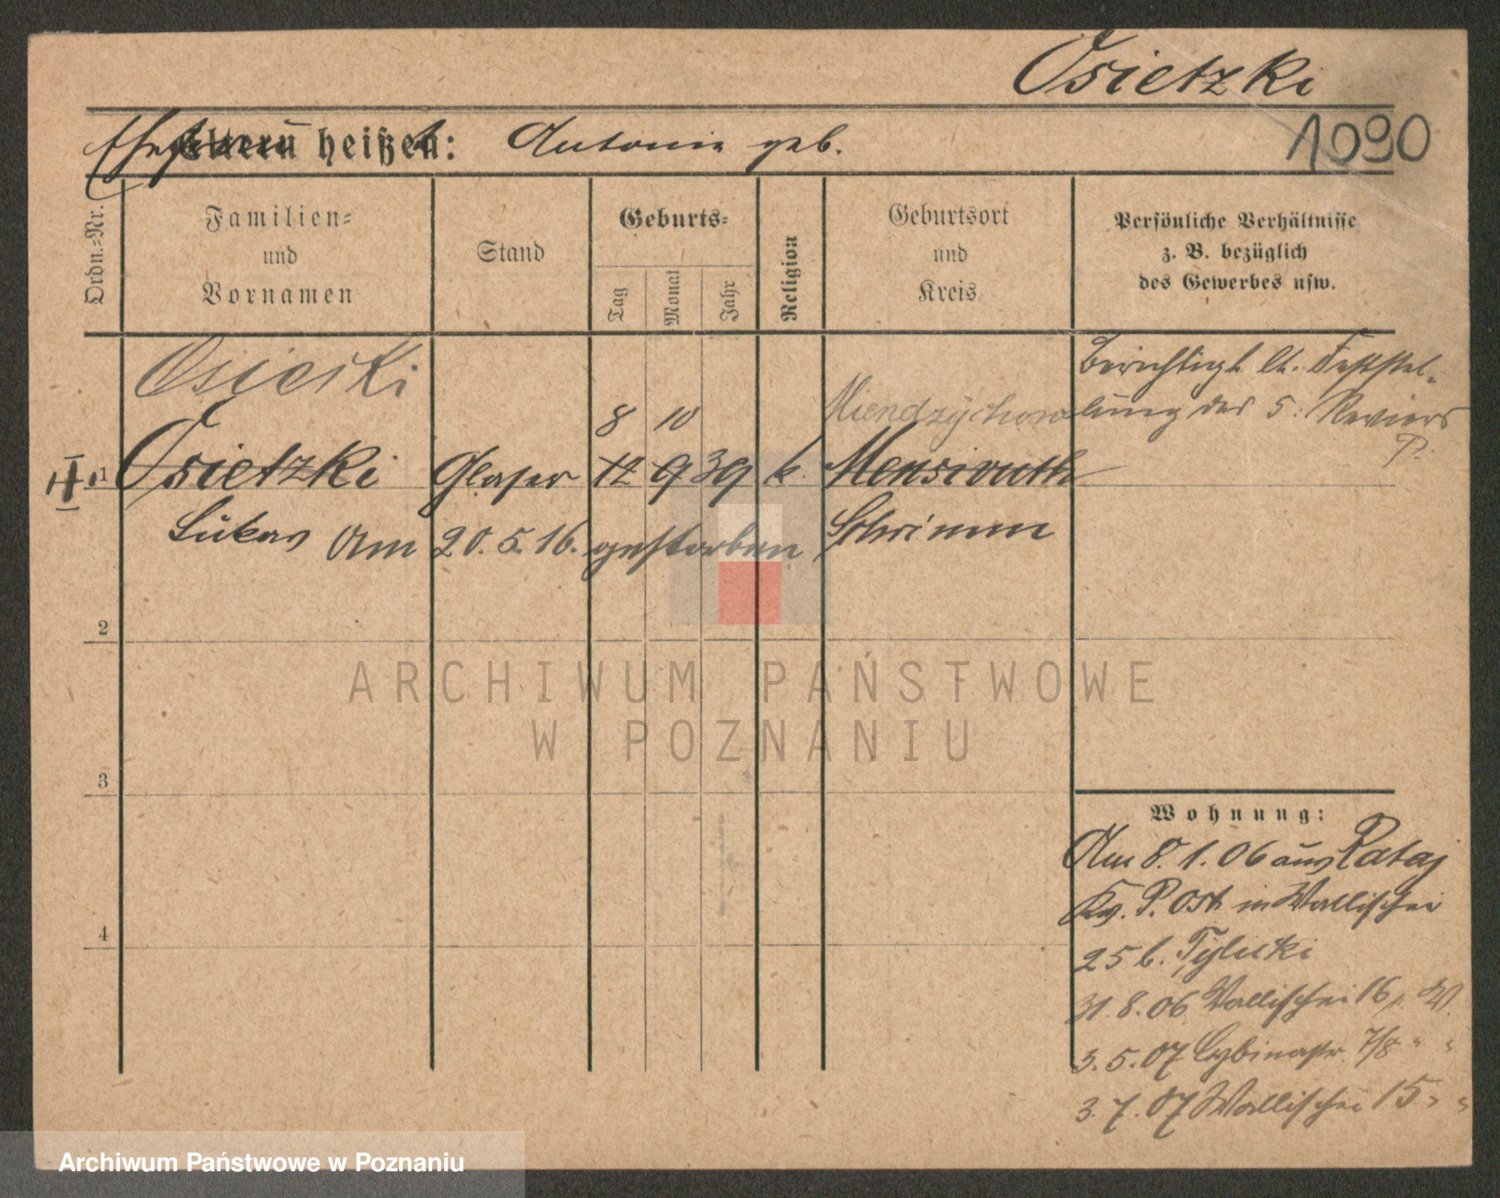 Osietzki
1090
Ehefrau
Eltern heißen: Antonie geb.
Ordn.-Nr.
Familien-
und
Vornamen
Stand
Geburts-
Tag
Monat
Jahr
Religion
Geburtsort
und
Kreis
Persönliche Verhältnisse
z. B. bezüglich
des Gewerbes usw.
Osiecki
8 10
Miendzychowo
Berichtigt lt. Feststel-
lung des 5. Reviers
P.
1 Osietzki Glaser 12 9 39 k.
Lukas Am 20.5.16. gestorben Schrimm
2
3
4
Wohnung:
Am 8.1.06 aus Rataj
P. Ost in Wallischei
25 b. Tylicki
31.8.06 Wallischei 16 b. W.
3.5.07 Cybinastr. 7/8 " "
3.7.07 Wallischei 15 " "
ARCHIWUM PAŃSTWOWE
W POZNANIU
Archiwum Państwowe w Poznaniu